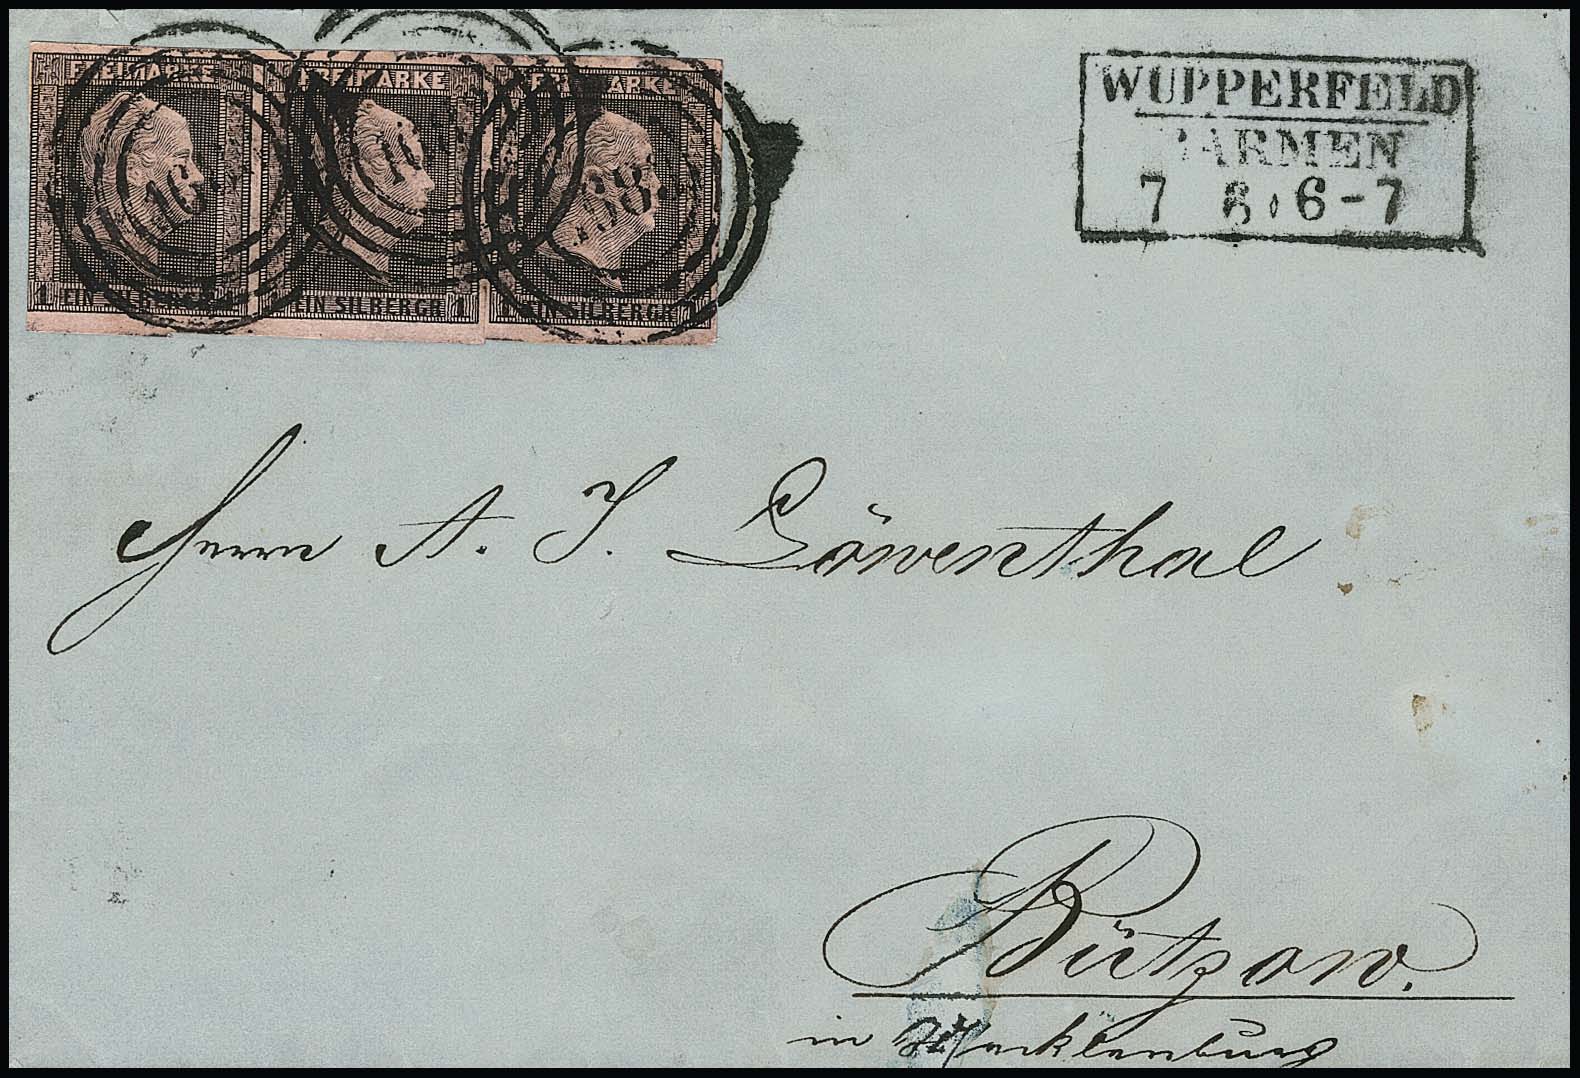 FREIMARKE FREIMARKE FREIMARKE
1 EIN SILBERGR 1 1 EIN SILBERGR 1 1 EIN SILBERGR 1
WUPPERFELD
BARMEN
7 8 6-7
Herrn A. J. Löwenthal
Bützow.
in Mecklenburg